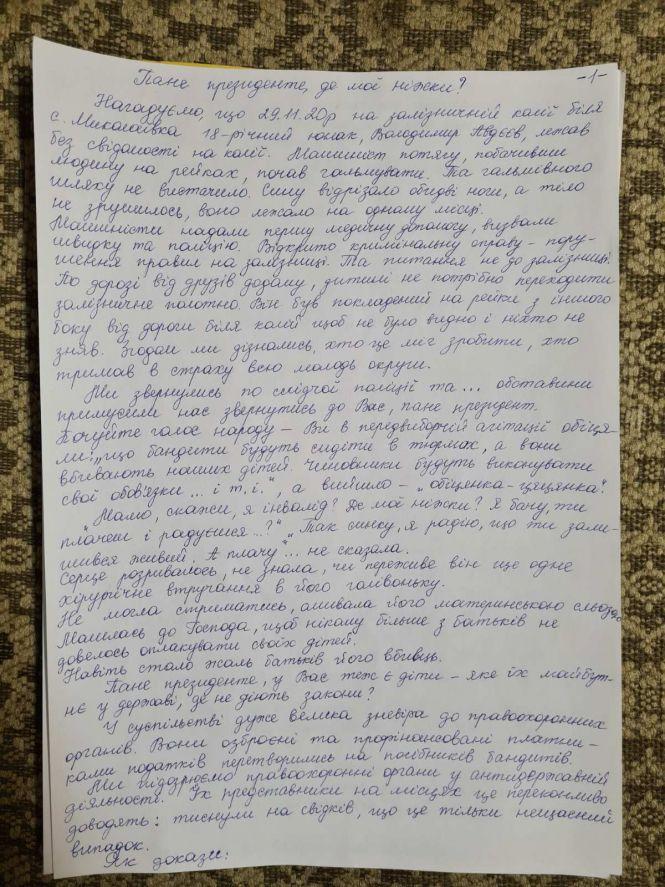 -1-
Пане президенте, де мої ніжки?
Нагадуємо, що 29.11.20р на залізничній колії біля
с. Миколаївка 18-річний юнак, Володимир Авдєєв, лежав
без свідомості на колії. Машиніст потягу, побачивши
людину на рейках, почав гальмувати. Та гальмівного
шляху не вистачило. Сину відрізало обидві ноги, а тіло
не зрушилось, воно лежало на одному місці.
Машиністи надали першу медичну допомогу, визвали
швидку та поліцію. Відкрито кримінальну справу - пору-
шення правил на залізниці. Та питання не до залізниці.
По дорозі від друзів додому, дитині не потрібно переходити
залізничне полотно. Він був покладений на рейки з іншого
боку від дороги біля колії щоб не було видно і ніхто не
зняв. Згодом ми дізнались, хто це міг зробити, хто
тримав в страху всю молодь округи.
Ми звернулись до слідчої поліції та... обставини
примусили нас звернутись до Вас, пане президент.
Почуйте голос народу - Ви в передвиборчій агітації обіця-
ли: „що бандити будуть сидіти в тюрмах, а вони
вбивають наших дітей. Чиновники будуть виконувати
свої обов'язки ... і т.і.", а вийшло - „обіцянка-цяцянка".
„Мамо, скажи, я інвалід? Де мої ніжки? Я бачу, ти
плачеш і радуєшся...?" „Так синку, я радію, що ти зали-
шився живий. А плачу"... не сказала.
Серце розривалось, не знала, чи переживе він ще одне
хірургічне втручання в його голівоньку.
Не могла стриматись, омивала його материнською сльозою
Молилась до Господа, щоб нікому більше з батьків не
довелось оплакувати своїх дітей.
Навіть стало жаль батьків його вбивць.
Пане президенте, у Вас теж є діти - яке їх майбут-
нє у державі, де не діють закони?
У суспільстві дуже велика зневіра до правоохоронних
органів. Вони озброєні та профінансовані платни-
ками податків перетворились на посібників бандитів.
Ми підозрюємо правоохоронні органи у антидержавній
діяльності. Їх представники на місцях це переконливо
доводять: тиснули на свідків, що це тільки нещасний
випадок.
Як докази: